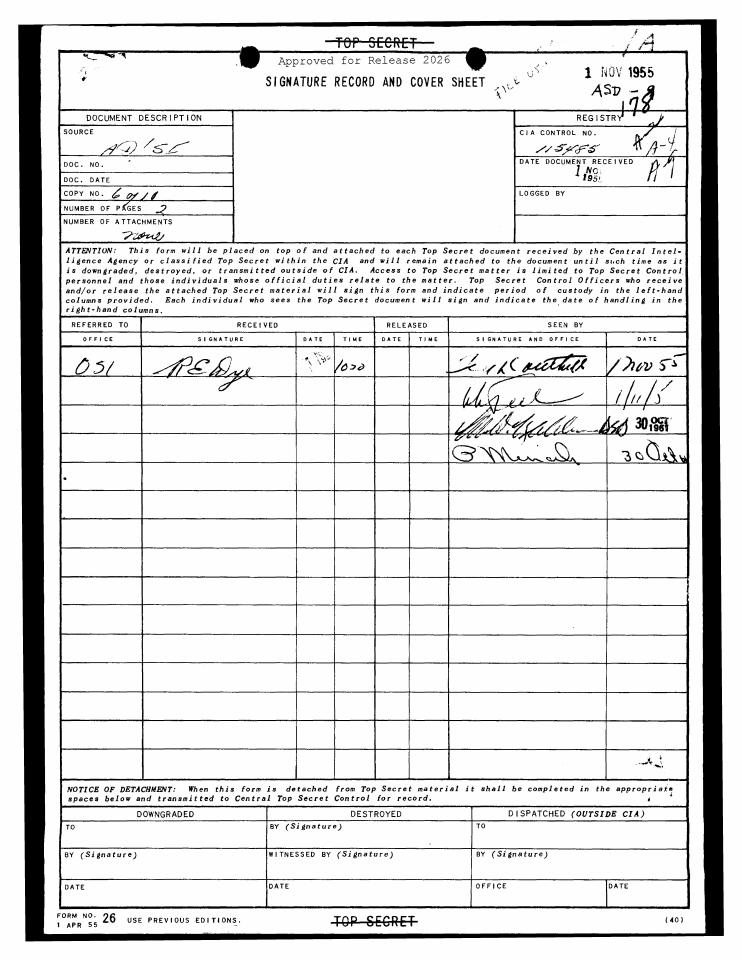 TOP SECRET
Approved for Release 2026
SIGNATURE RECORD AND COVER SHEET
1 NOV 1955
ASD -
178
1A
DOCUMENT DESCRIPTION
REGISTRY
SOURCE
AD/SI
CIA CONTROL NO.
115485
A-4
DOC. NO.
DATE DOCUMENT RECEIVED
1 NO
195
DOC. DATE
COPY NO. 6 of 11
LOGGED BY
NUMBER OF PAGES 2
NUMBER OF ATTACHMENTS
none
ATTENTION: This form will be placed on top of and attached to each Top Secret document received by the Central Intel-
ligence Agency or classified Top Secret within the CIA and will remain attached to the document until such time as it
is downgraded, destroyed, or transmitted outside of CIA. Access to Top Secret matter is limited to Top Secret Control
personnel and those individuals whose official duties relate to the matter. Top Secret Control Officers who receive
and/or release the attached Top Secret material will sign this form and indicate period of custody in the left-hand
columns provided. Each individual who sees the Top Secret document will sign and indicate the date of handling in the
right-hand columns.
REFERRED TO RECEIVED RELEASED SEEN BY
OFFICE SIGNATURE DATE TIME DATE TIME SIGNATURE AND OFFICE DATE
OSI R E Dye 1020 1 Nov 55
1/11/5
30 OCT 1961
30 Oct
NOTICE OF DETACHMENT: When this form is detached from Top Secret material it shall be completed in the appropriate
spaces below and transmitted to Central Top Secret Control for record.
DOWNGRADED DESTROYED DISPATCHED (OUTSIDE CIA)
TO BY (Signature) TO
BY (Signature) WITNESSED BY (Signature) BY (Signature)
DATE DATE OFFICE DATE
FORM NO. 26 USE PREVIOUS EDITIONS.
1 APR 55
TOP SECRET
(40)